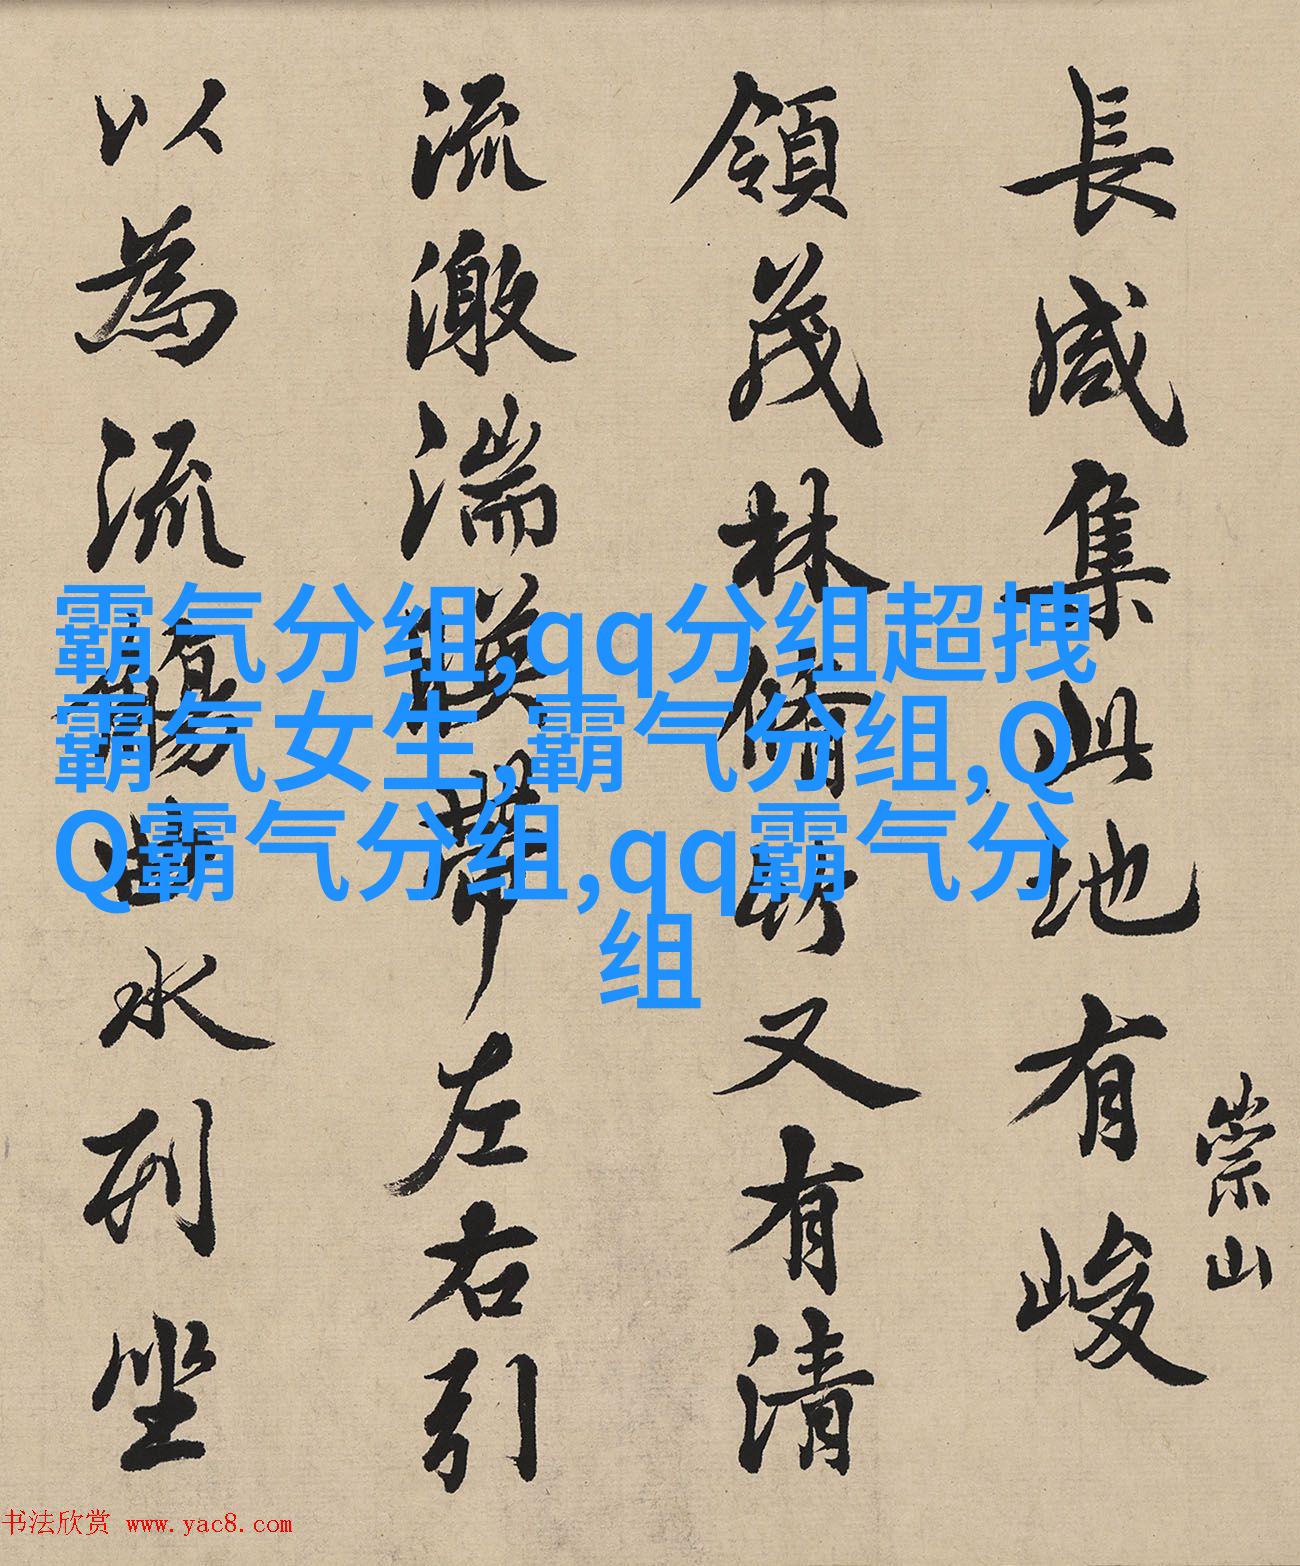 長咸集此地有峻
崇山
領茂林脩竹又有清
流激湍暎帶左右引
以為流觴曲水列坐
霸气分组,qq分组超拽
霸气女生,霸气分组,Q
Q霸气分组,qq霸气分
组
书法欣赏 www.yac8.com